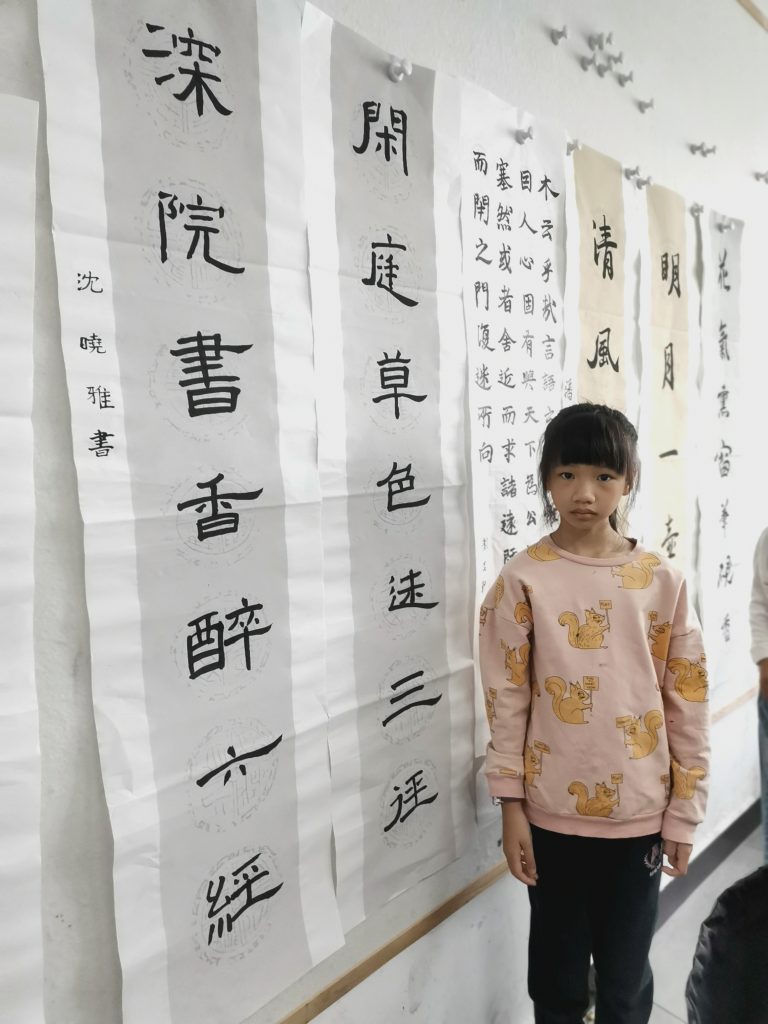 花氣筆硯香
明月一壺
清風
木云乎哉言語
人心固有與天下為公
塞然或者舍近而求諸遠
而閉之門復迷所向
閑庭草色迷三徑
深院書香醉六經
沈曉雅書